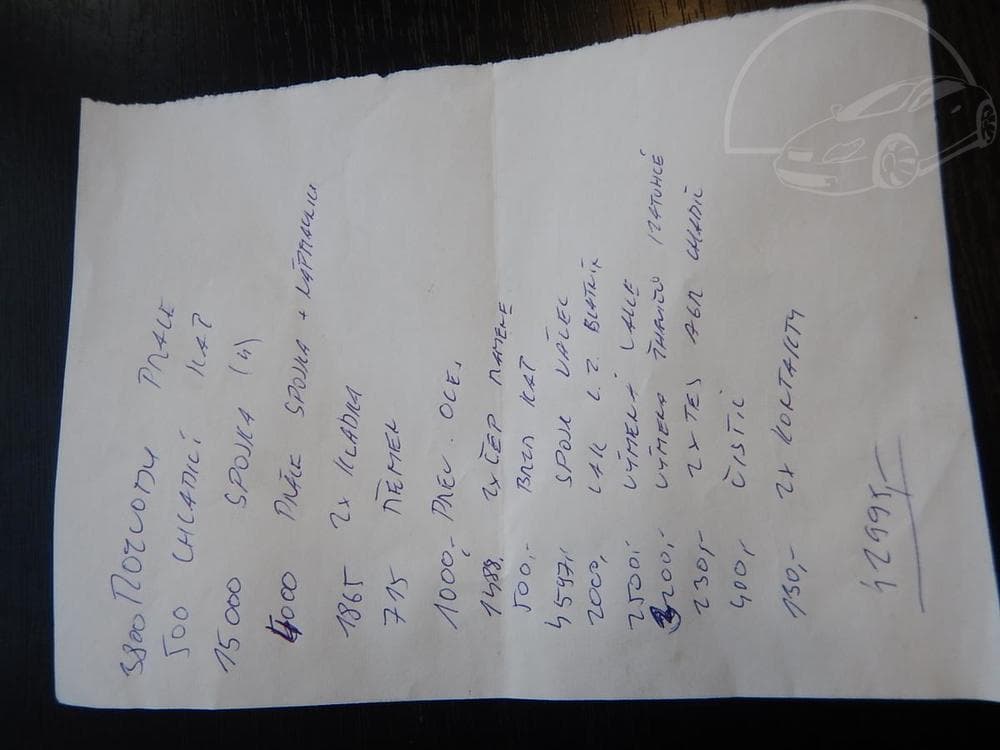 3800 ROZVODY PRACE
500 CHLADÍCÍ KAP
15000 SPOJKA (4)
4000 PRÁCE SPOJKA + NÁPRAVNICE
1865 2x KLADKA
715 ŘEMEN
1000,- PŘEV. OLEJ
1488,- 2x ČEP RAMENE
500,- BRZD KAP
4597,- SPOJK VÁLEC
2000,- LAK L. Z. BLATNÍK
2500,- VÝMĚNA
3200,- VÝMĚNA
230,- 2x TES AGR CHLADIČ
400,- ČISTIČ
130,- 2x KONTAKTY
42995,-